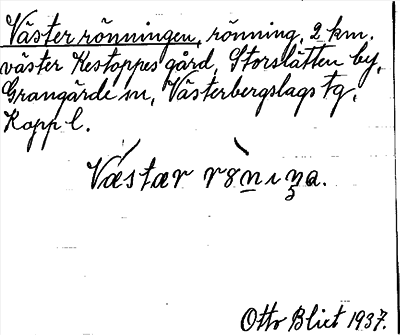 Väster rönningen, rönning, 2 km.
väster Kestoppes gård, Storslätten by,
Grangärde sn, Västerbergslags tg,
Kopp l.
Væstær rönıŋa.
Otto Blixt 1937.